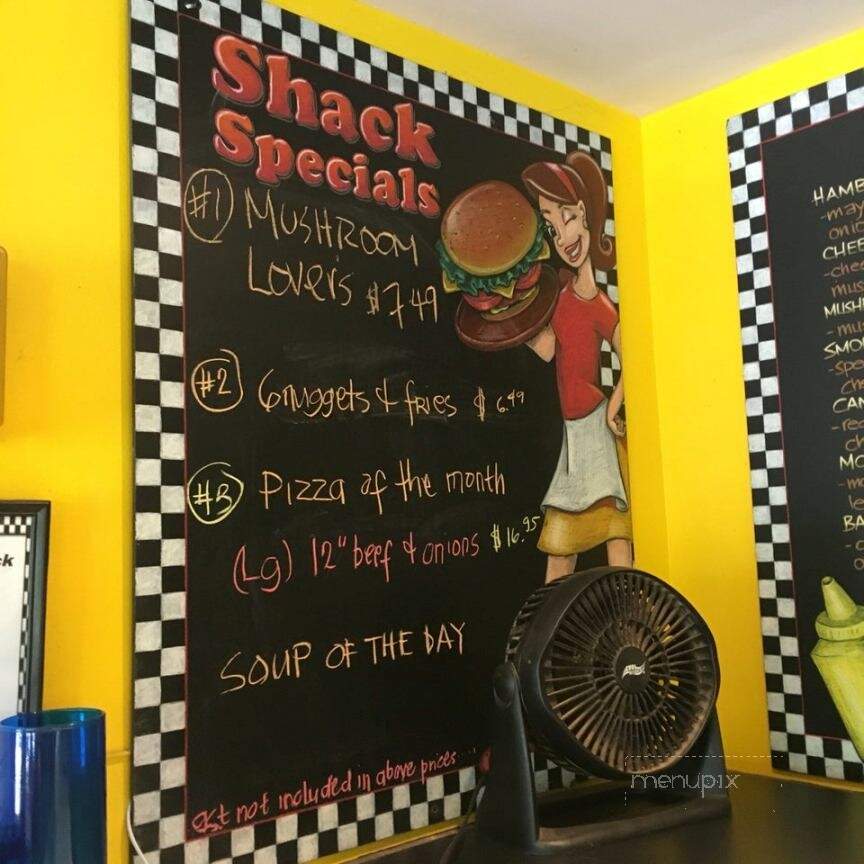 Shack
Specials
#1 MUSHROOM
Lovers $7.49
#2 6 nuggets & fries $6.49
#3 Pizza of the month
(Lg) 12" beef & onions $16.95
SOUP OF THE DAY
not included in above prices
HAMB
-may
onio
CHEE
-chee
mus
MUSH
-mu
SMO
-spe
ch
CAN
-rec
ch
MO
-mo
le
BA
menupix